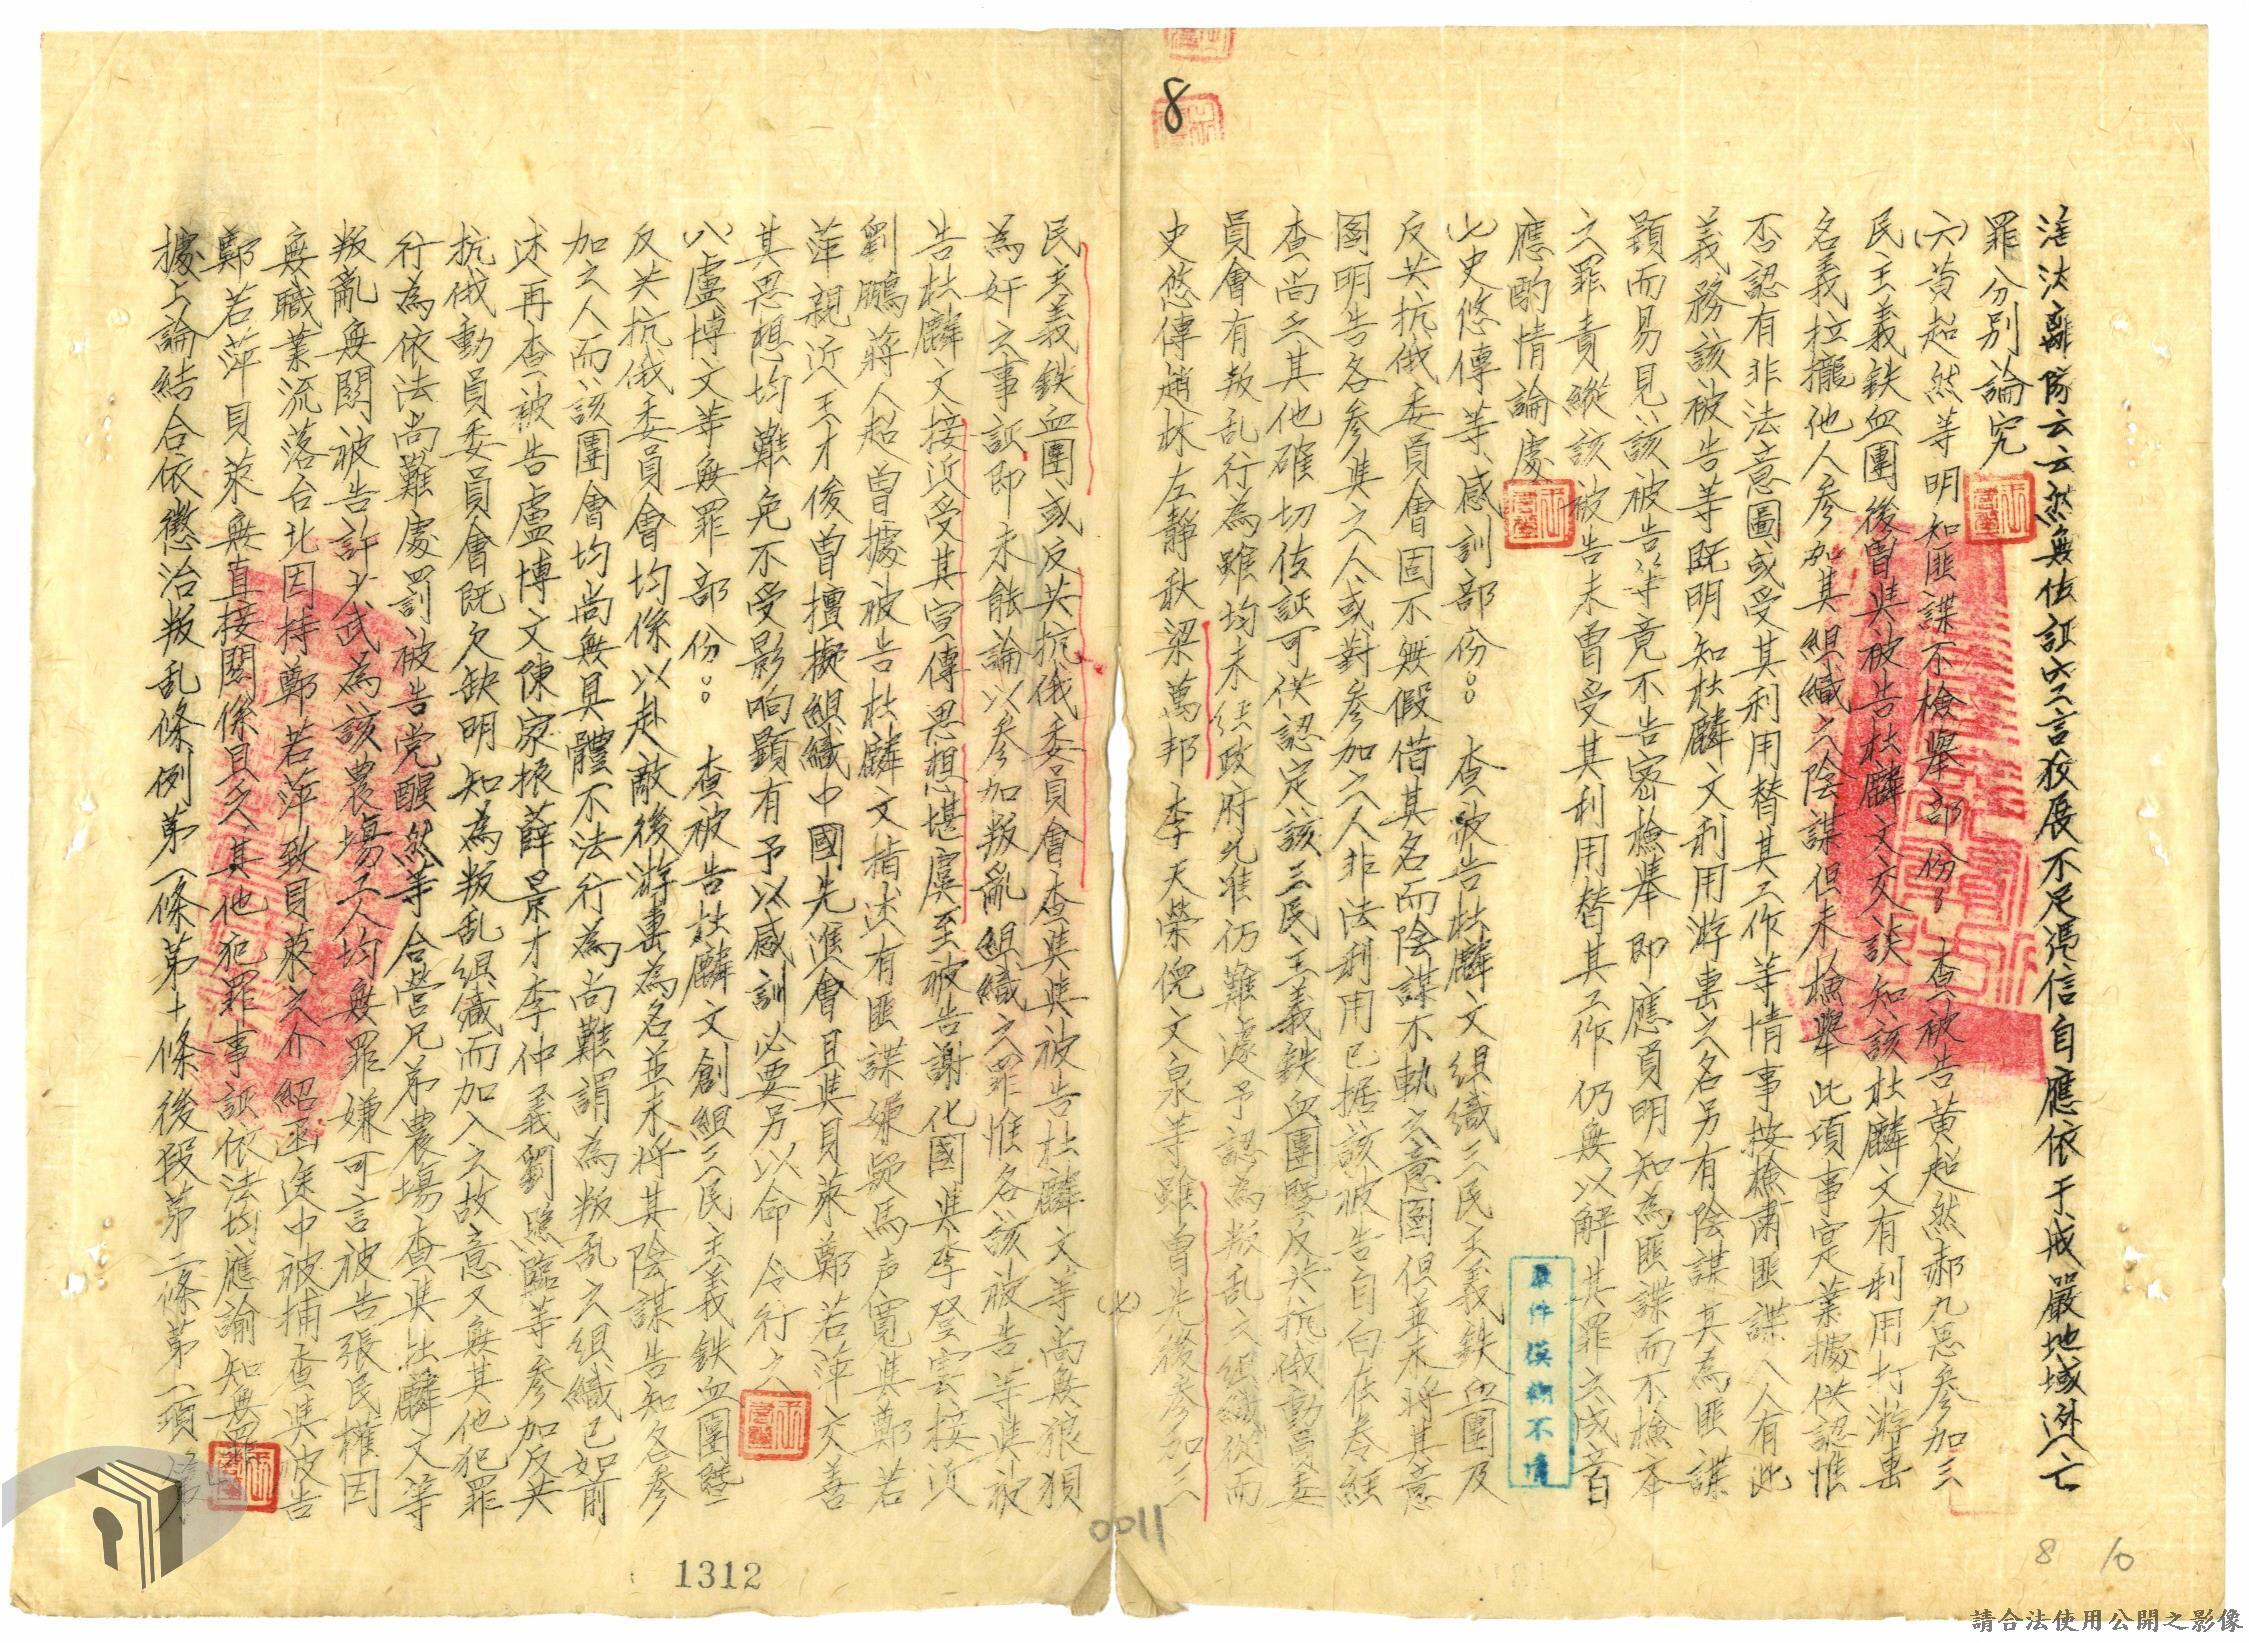 8
法離隊云云然無佐証空言狡展不足憑信自應依于戒嚴地域逃亡
罪分別論究
(六)黃超然等明知匪諜不檢舉部份：查被告黃超然郝九思參加三
民主義鉄血團後曾與被告杜麟文交談知該杜麟文有利用打游擊
名義拉攏他人參加其組織之陰謀但未檢舉此項事寔業據供認惟
否認有非法意圖或受其利用替其工作等情事按檢肅匪諜人人有此
義務該被告等既明知杜麟文利用游擊之名另有陰謀其為匪諜
顕而易見該被告等竟不告密檢舉即應負明知為匪諜而不檢舉
之罪責縱該被告未曾受其利用替其工作仍無以解其罪之成立自
應酌情論處
(七)史悠傳等感訓部份：查被告杜麟文組織三民主義鉄血團及
反共抗俄委員會固不無假借其名而陰謀不軌之意圖但並未將其意
图明告各參與之人或對參加之人非法利用已据該被告自白在卷經
查尚乏其他確切佐証可供認定該三民主義鉄血團暨反共抗俄動員委
員會有叛乱行為雖均未經政府允准仍難遽予認為叛乱之組織從而
史悠傳趙林左靜秋梁萬邦李天榮倪文泉等雖曾先後參加三
民主義鉄血團或反共抗俄委員會查其與被告杜麟文等尚無狼狽
為奸之事証即未能論以參加叛亂組織之罪惟各該被告等與被
告杜麟文接近受其宣傳思想堪虞至被告謝化國與李登雲接近
劉鵬蔣人超曾據被告杜麟文指述有匪諜嫌疑馬声寬與鄭若
萍親近王才俊曾擅擬組織中國先進會且與貝萊鄭若萍交善
其思想均難免不受影响顕有予以感訓必要另以命令行之
(八)盧博文等無罪部份：查被告杜麟文創組三民主義鉄血團暨
反共抗俄委員會均係以赴敵後游擊為名並未將其陰謀告知各參
加之人而該團會均尚無具體不法行為尚難謂為叛乱之組織已如前
述再查被告盧博文陳家振薛景才李仲義劉熙臨等參加反共
抗俄動員委員會既欠缺明知為叛乱組織而加入之故意又無其他犯罪
行為依法尚難處罰被告党醒然等合營兄弟農場查與杜麟文等
叛亂無關被告許少武為該農場工人均無罪嫌可言被告張民權因
無職業流落台北因持鄭若萍致貝萊之介紹函途中被捕查與被告
鄭若萍貝萊無直接關係且又其他犯罪事証依法均應諭知無罪
據上論結合依懲治叛乱條例第一條第十條後段第二條第一項第
(八)
原件模糊不清
0011
1312
8 10
請合法使用公開之影像